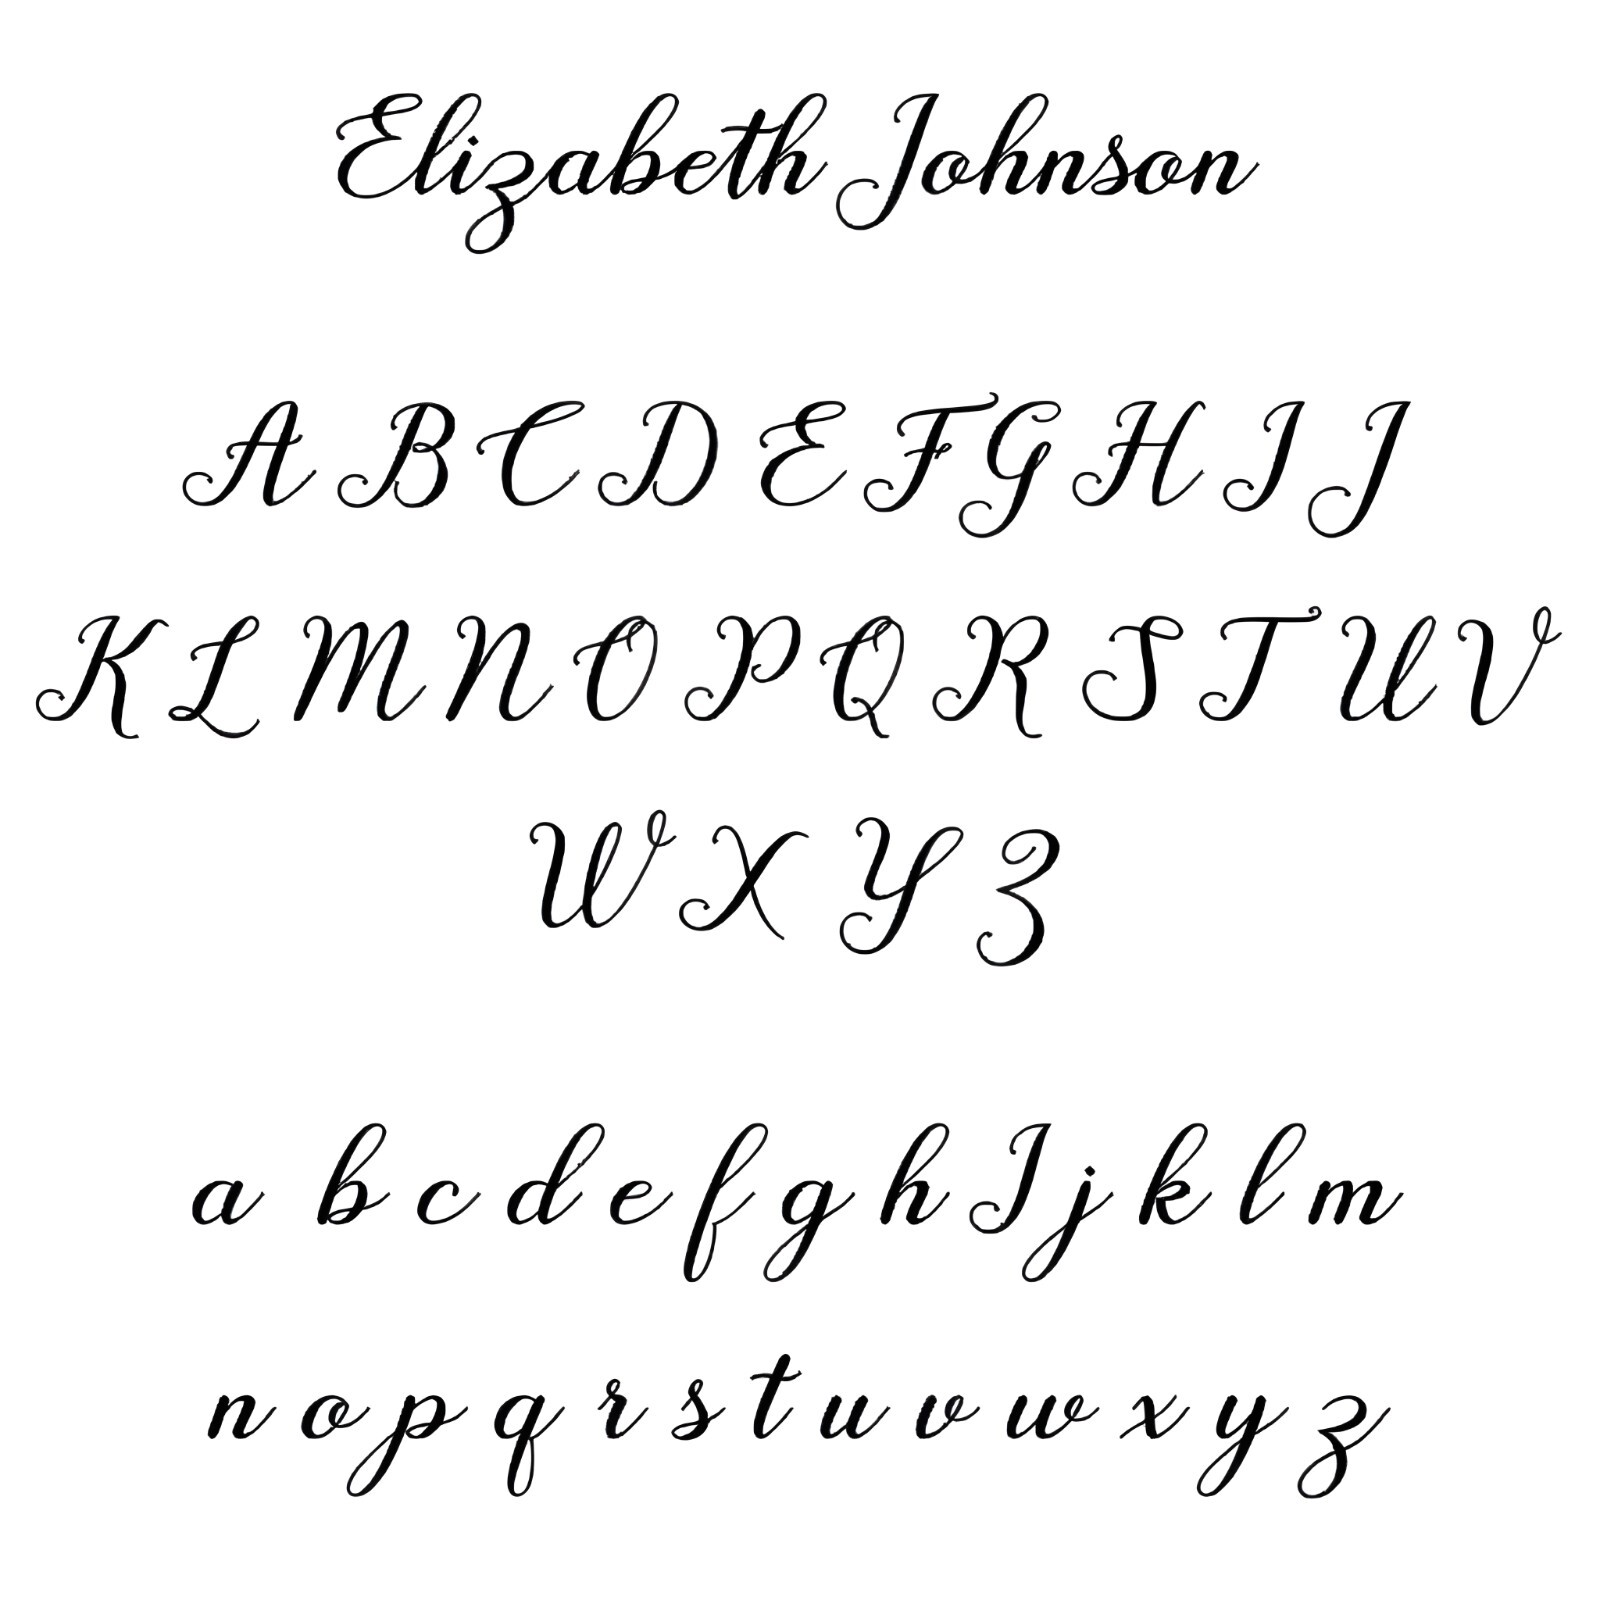 Elizabeth Johnson
A B C D E F G H I J
K L M N O P Q R S T U V
W X Y Z
a b c d e f g h I j k l m
n o p q r s t u v w x y z